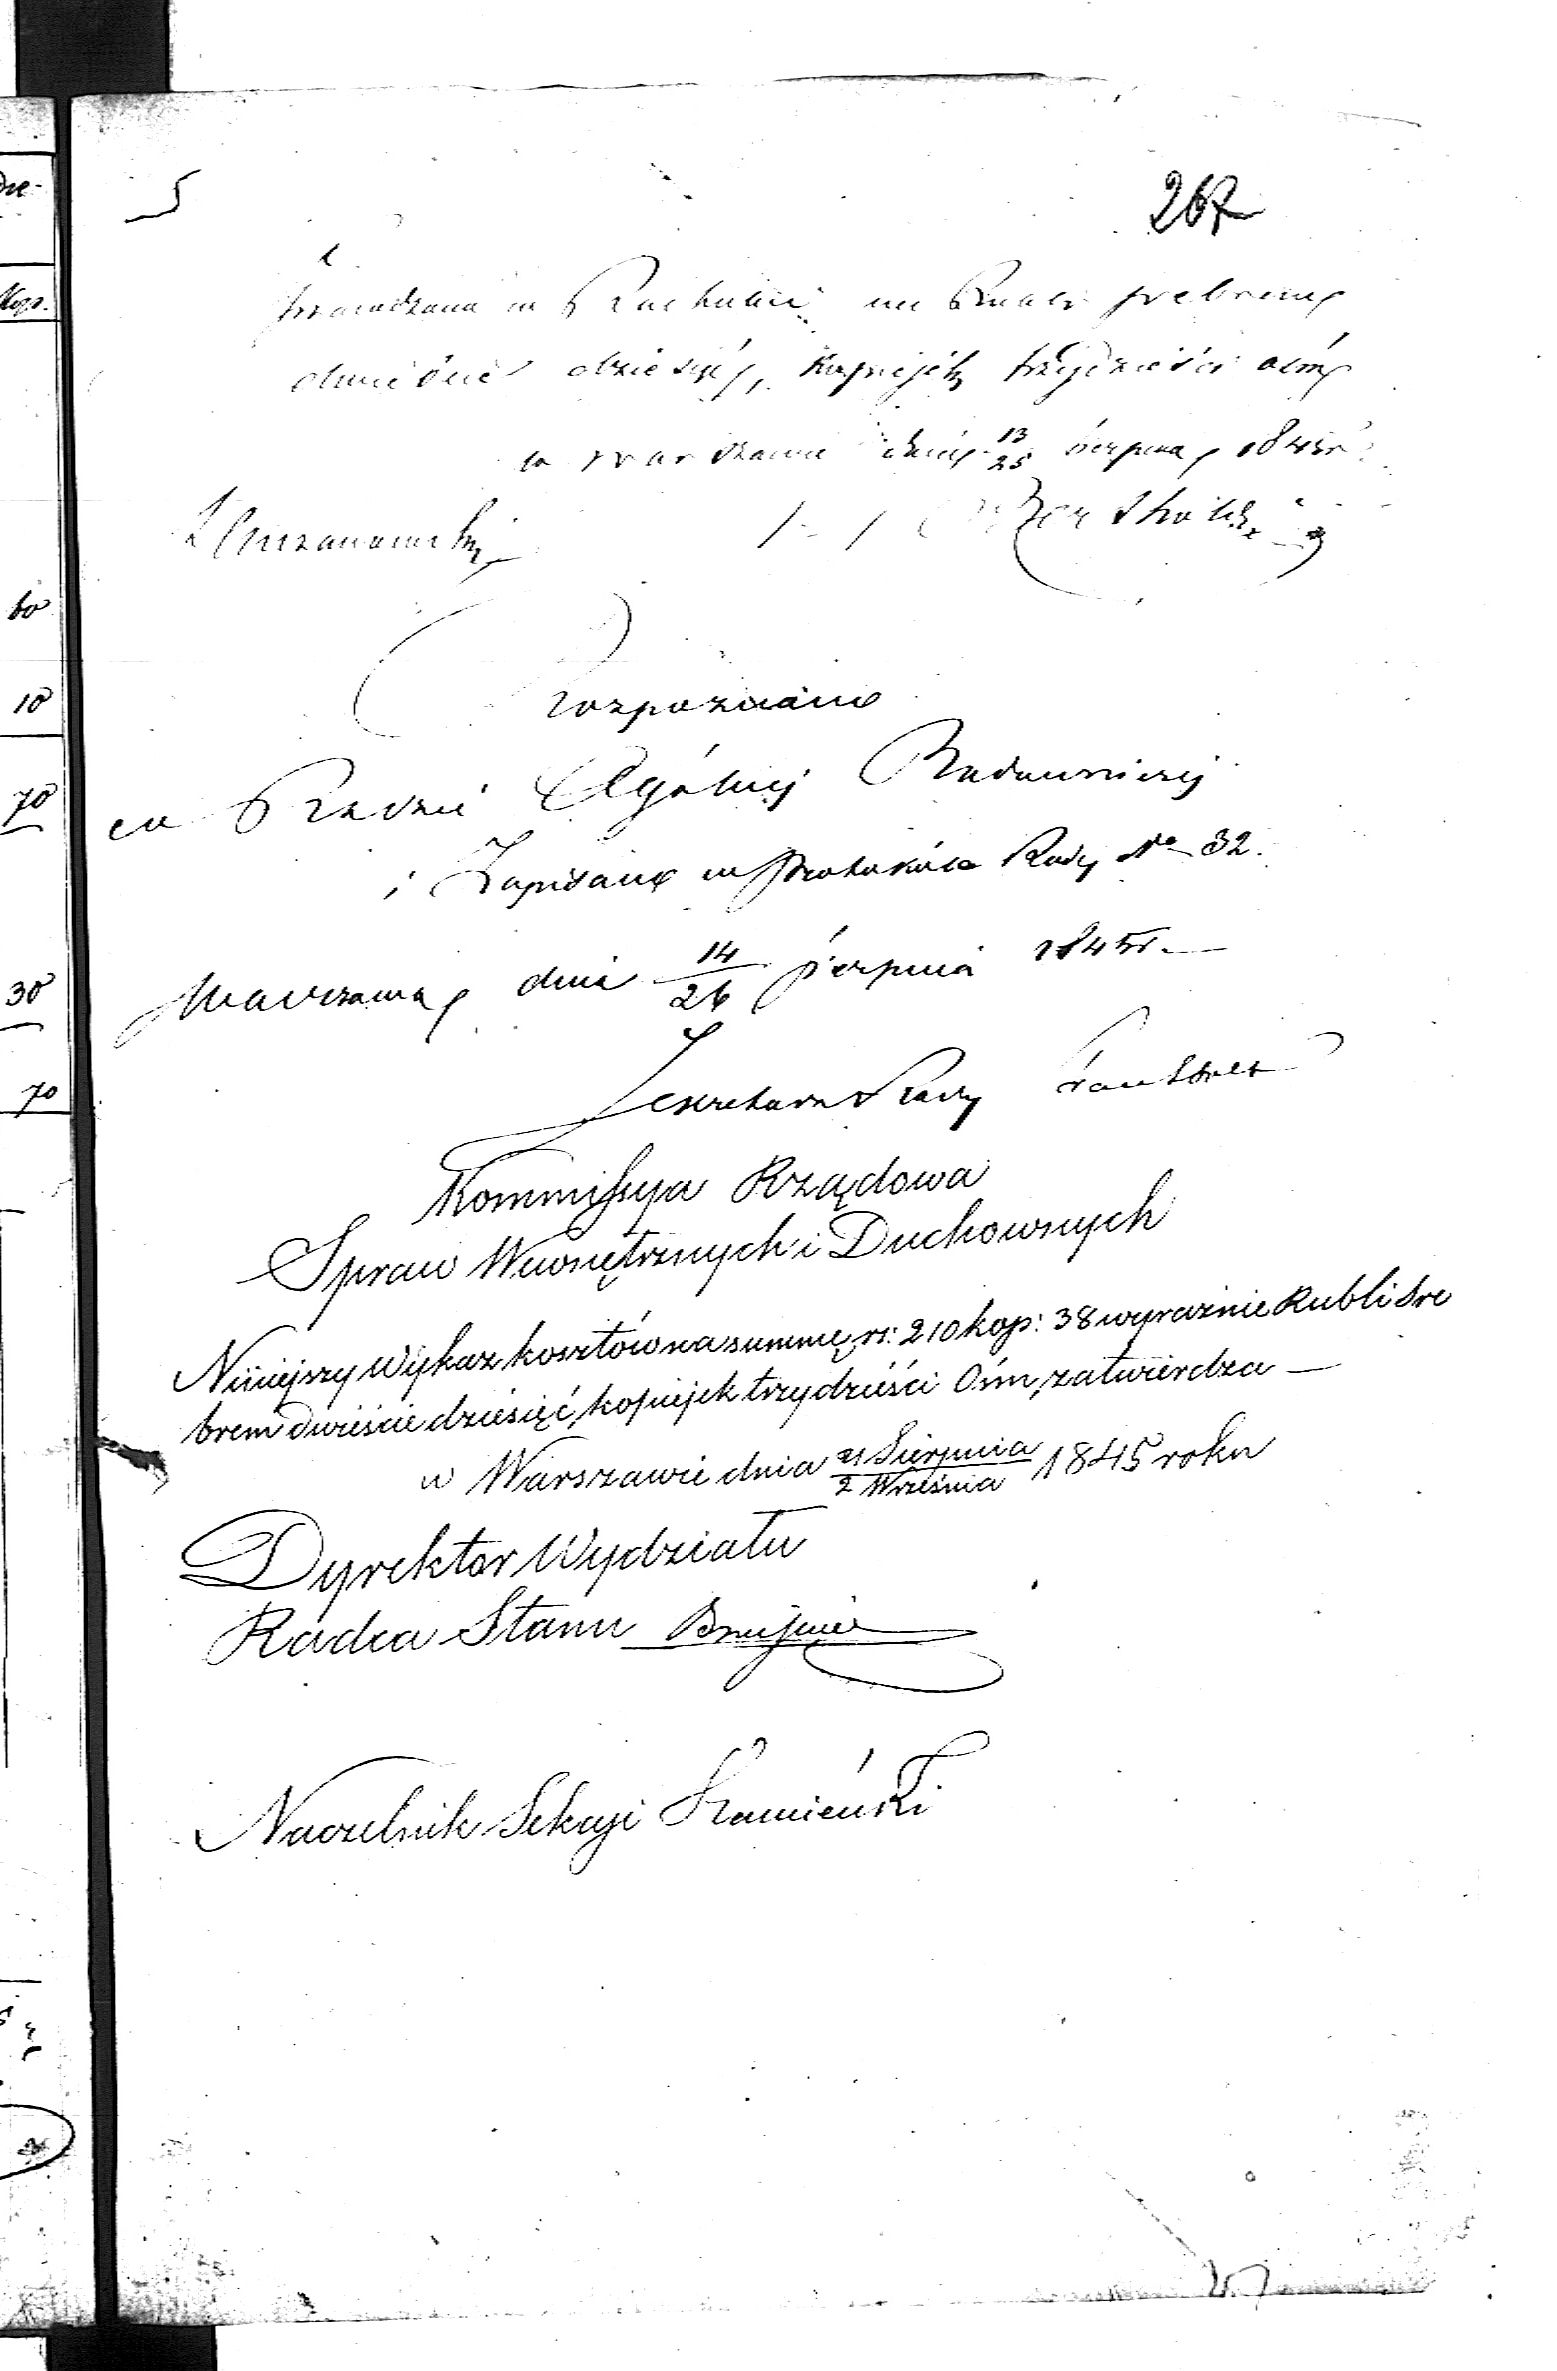 267
w Rachubie na Rubli srebrem
dwieście dziesięć, kopiejek trzydzieści ośm
w Warszawie dnia 13/25 sierpnia 1845 r.
Rozpoznano
w Radzie Ogólnej Budowniczej
i Zapisano w Protokóle Rady No 32.
Warszawa dnia 14/26 sierpnia 1845 r.
Sekretarz Rady
Kommissya Rządowa
Spraw Wewnętrznych i Duchownych
Niniejszy Wykaz kosztów na summę rs: 210 kop: 38 wyraźnie Rubli Sre
brem dwieście dziesięć, kopiejek trzydzieści Ośm, zatwierdza —
w Warszawie dnia 21 Sierpnia / 2 Września 1845 roku
Dyrektor Wydziału
Radca Stanu
Naczelnik Sekcyi Kamieński
60
10
70
30
70